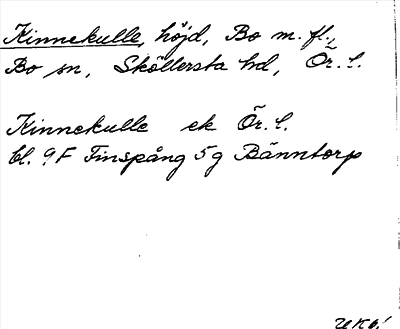 Kinnekulle, höjd, Bo m. fl.,
Bo sn, Sköllersta hd, Ör. l.
Kinnekulle ek Ör. l.
bl. 9F Finspång 5g Bänntorp